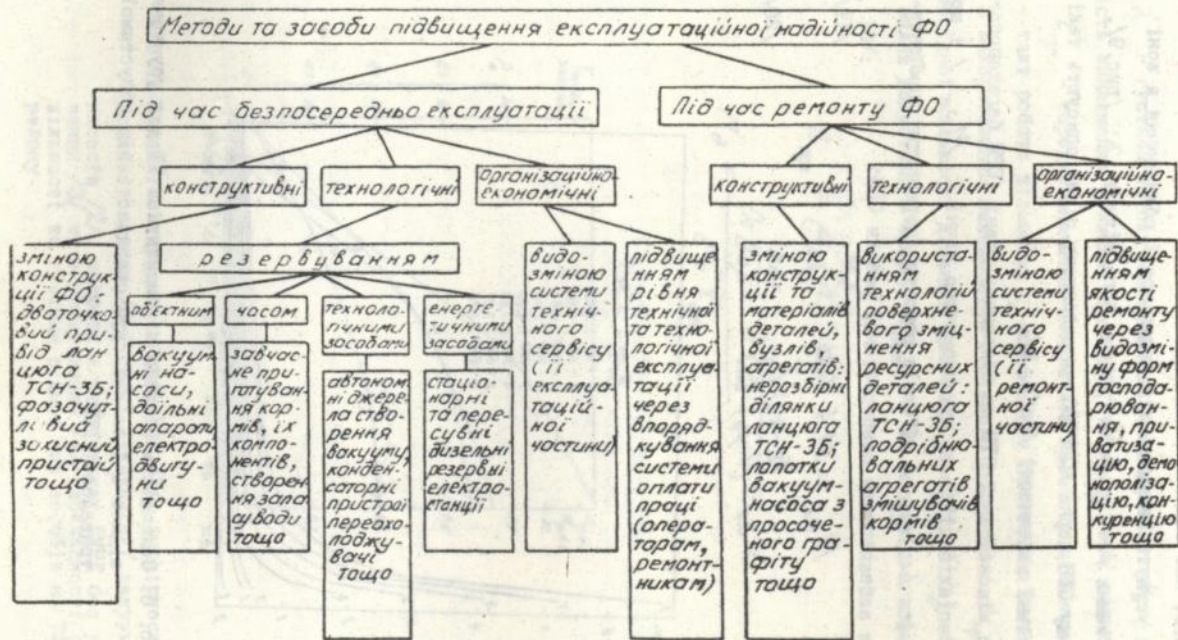 Методи та засоби підвищення експлуатаційної надійності ФО
Під час безпосередньо експлуатації
Під час ремонту ФО
конструктивні
технологічні
організаційно-
економічні
конструктивні
технологічні
організаційно-
економічні
зміною
конструк-
ції ФО:
двоточко-
вий при-
від лан-
цюга
ТСН-3Б;
фазочут-
ливий
захисний
пристрій
тощо
резервуванням
об'єктним
вакуум-
ні на-
соси,
доїльні
апарати,
електро-
двигу-
ни
тощо
часом
завчас-
не при-
готуван-
ня кор-
мів, їх
компо-
нентів,
створен-
ня запа-
су води
тощо
техноло-
гічними
засобами
автоном-
ні джере-
ла ство-
рення
вакууму,
конден-
саторні
пристрої
переохо-
лоджу-
вачі
тощо
енерге-
тичними
засобами
стаціо-
нарні
та пере-
сувні
дизельні
резервні
електро-
станції
видо-
зміною
системи
техніч-
ного
сервісу
(її
експлу-
атацій-
ної
частини)
підвище-
нням
рівня
технічної
та техно-
логічної
експлуа-
тації
через
впоряд-
кування
системи
оплати
праці
(опера-
торам,
ремонт-
никам)
зміною
конструк-
ції та
матеріалів
деталей,
вузлів,
агрегатів:
нерозбірні
ділянки
ланцюга
ТСН-3Б;
лопатки
вакуум-
насоса з
просоче-
ного гра-
фіту
тощо
використа-
нням
технологій
поверхне-
вого зміц-
нення
ресурсних
деталей:
ланцюга
ТСН-3Б;
подрібню-
вальних
агрегатів
змішувачів
кормів
тощо
видо-
зміною
системи
техніч-
ного
сервісу
(її
ремонт-
ної
частини)
підвище-
нням
якості
ремонту
через
видозмі-
ну форм
господа-
рюван-
ня, при-
ватиза-
цію, демо-
нополіза-
цію, кон-
куренцію
тощо